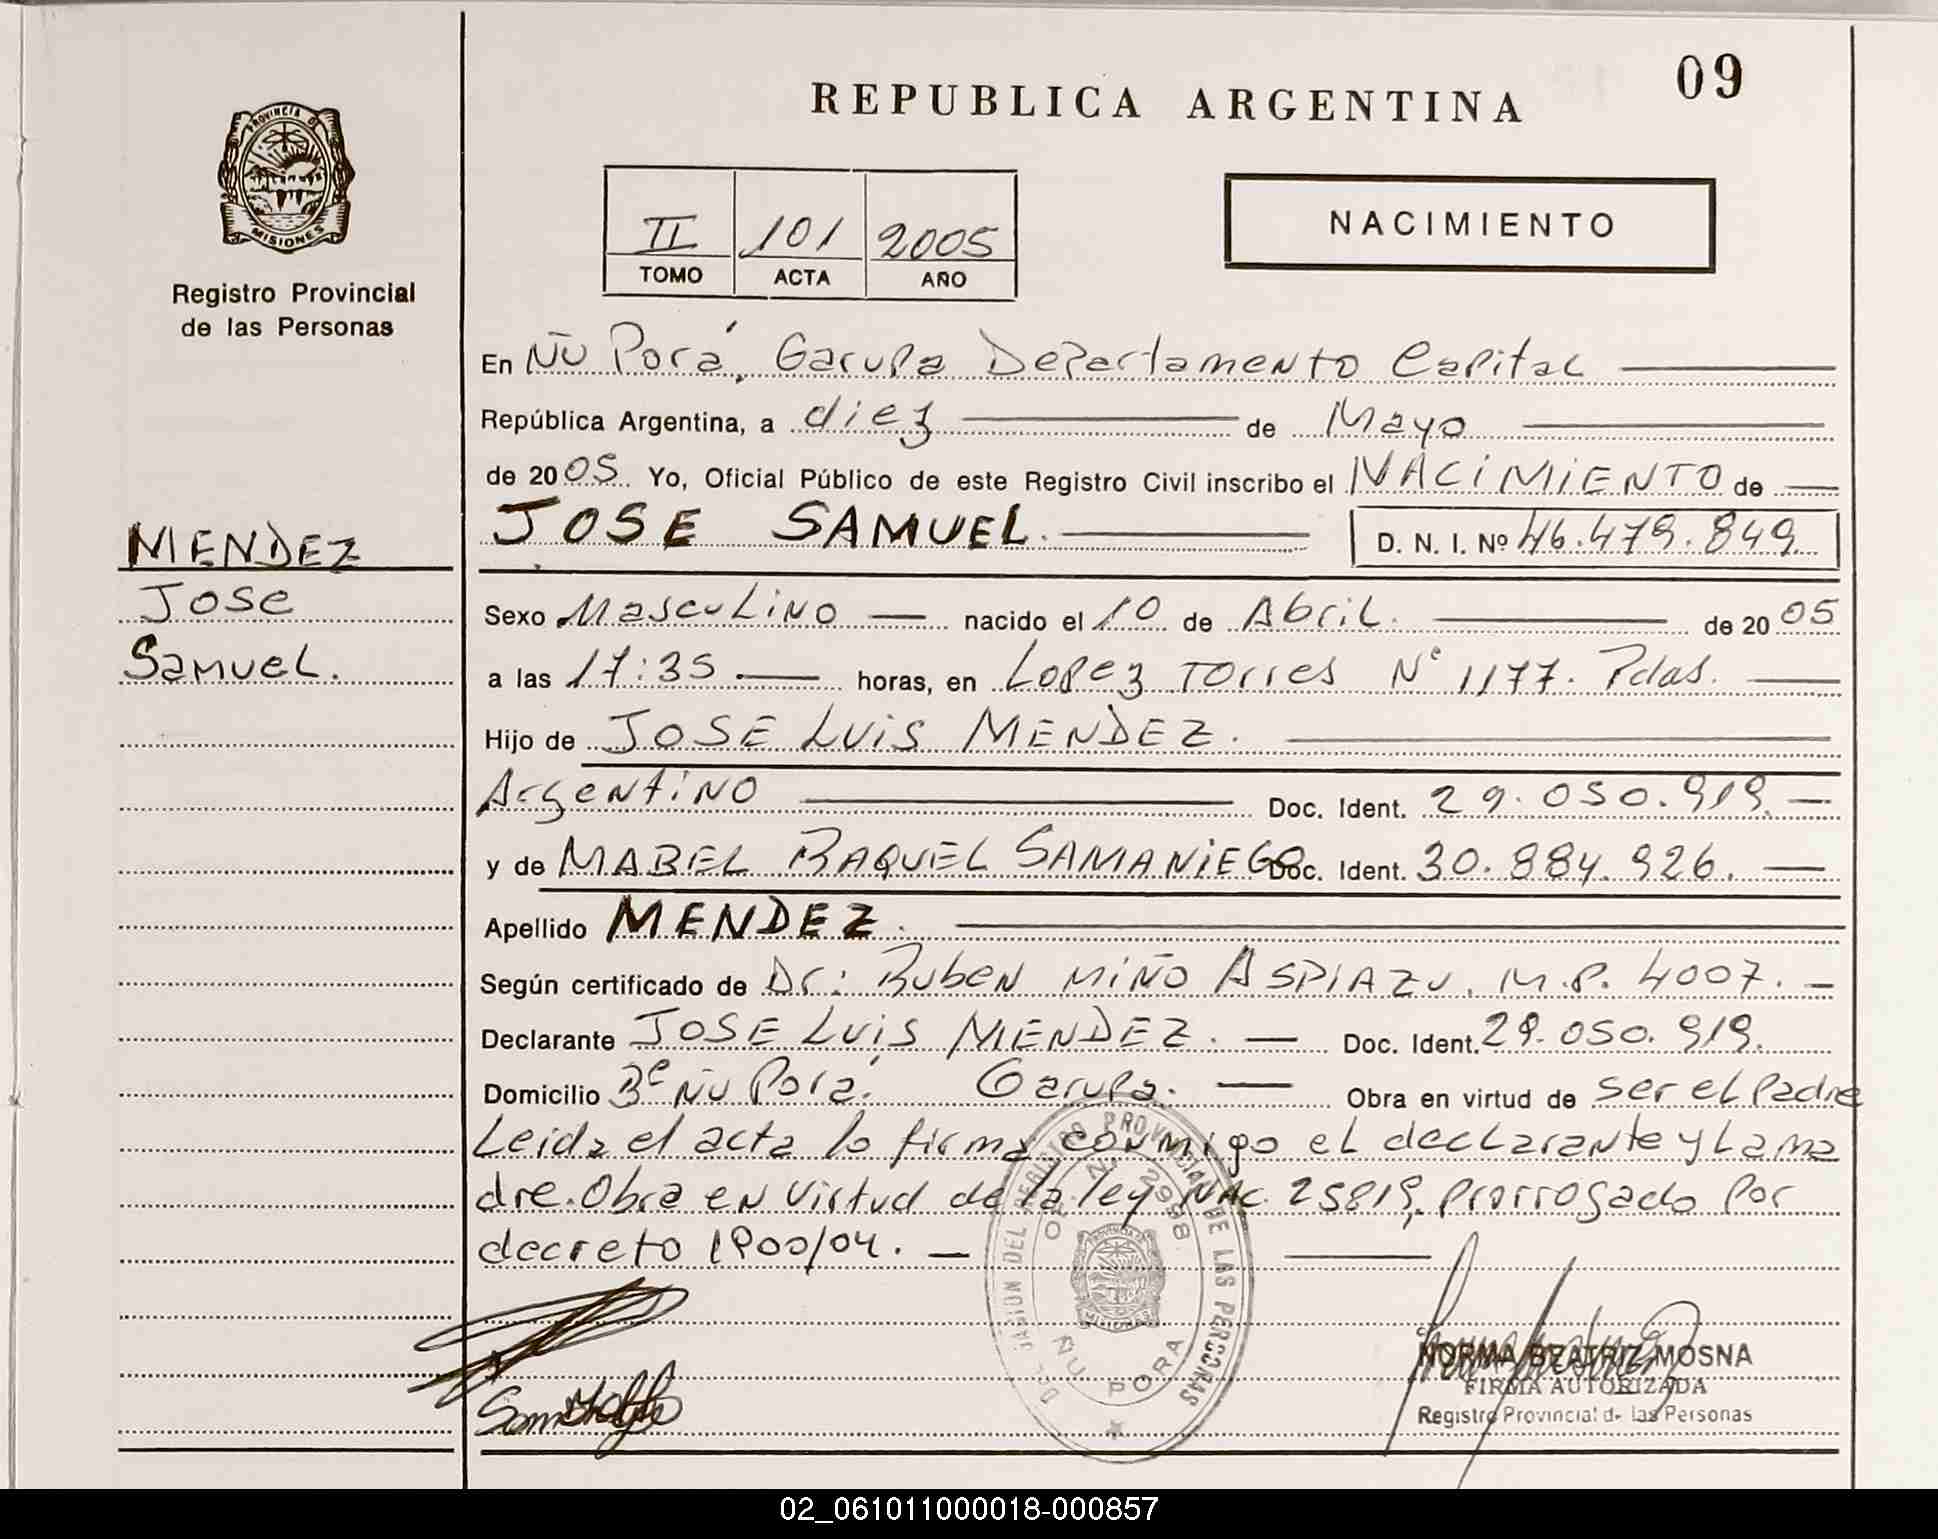 REPUBLICA ARGENTINA
09
PROVINCIA DE
MISIONES
Registro Provincial
de las Personas
II 101 2005
TOMO ACTA AÑO
NACIMIENTO
En Ñu Porá, Garupa Departamento Capital
República Argentina, a diez de Mayo
de 2005 Yo, Oficial Público de este Registro Civil inscribo el NACIMIENTO de
JOSE SAMUEL. D. N. I. Nº 46.479.849
MENDEZ
Jose
Samuel.
Sexo Masculino nacido el 10 de Abril. de 2005
a las 17:35 horas, en Lopez Torres Nº 1177. Pdas.
Hijo de JOSE LUIS MENDEZ.
Argentino Doc. Ident. 29.050.919.
y de MABEL RAQUEL SAMANIEGO Doc. Ident. 30.884.926.
Apellido MENDEZ.
Según certificado de Dr: Ruben MIÑO ASPIAZU. M.P. 4007.
Declarante JOSE LUIS MENDEZ. Doc. Ident. 29.050.919.
Domicilio Bº Ñu Porá. Garupa. Obra en virtud de ser el Padre
Leida el acta lo firma conmigo el declarante y La ma
dre. Obra en virtud de la Ley NAC. 25819, prorrogado Por
decreto 1900/04.
REGISTRO PROVINCIAL DE LAS PERSONAS
OF. N. 2998
MISIONES
ÑU PORA
NORMA BEATRIZ MOSNA
FIRMA AUTORIZADA
Registro Provincial de las Personas
02_061011000018-000857